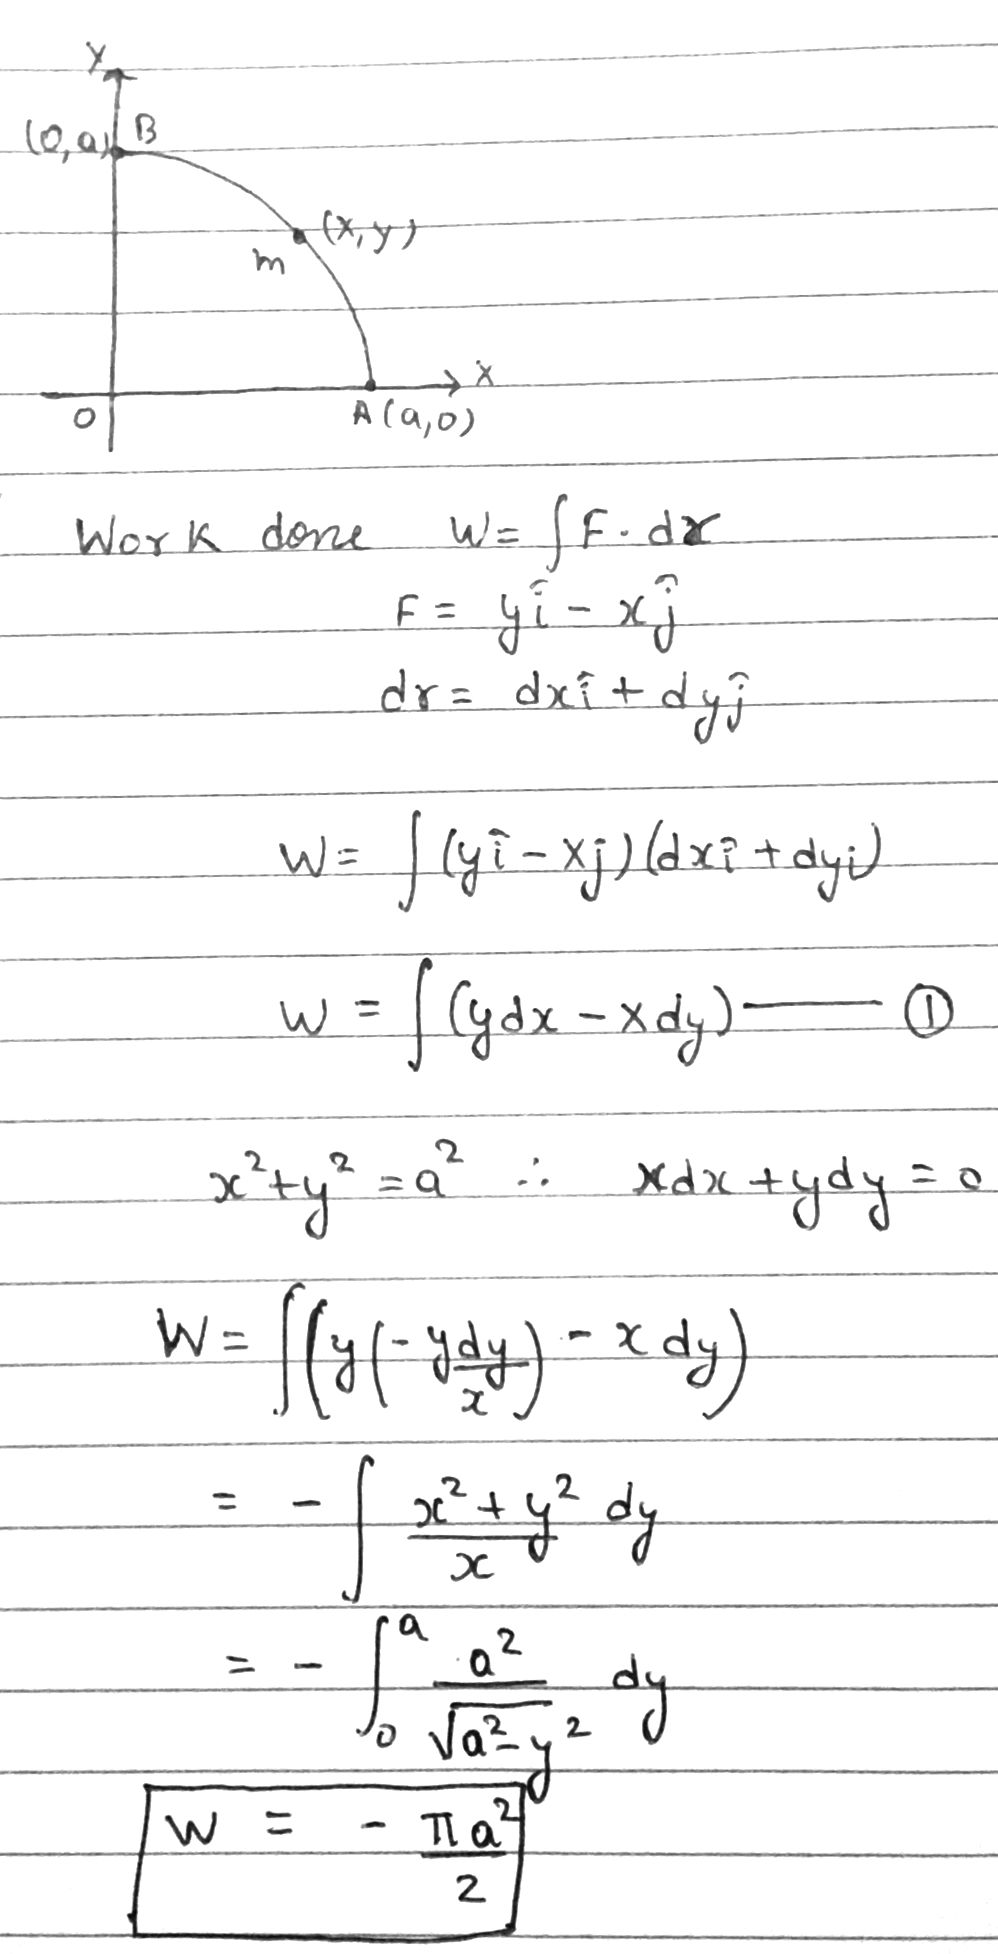 Y
(0,a) B
(x,y)
m
X
O
A(a,0)
Work done W= ∫F.dx
F = yî - xĵ
dr = dxî + dyĵ
W = ∫(yî - xj)(dxî + dyj)
W = ∫(ydx - xdy) —— ①
x²+y² = a² ∴ xdx + ydy = 0
W = ∫(y(-ydy/x) - x dy)
= - ∫ x²+y²/x dy
= - ∫₀ᵃ a²/√a²-y² dy
W = - πa²/2